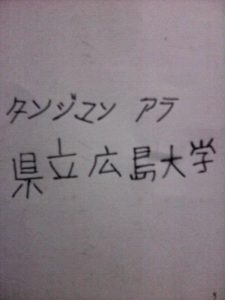 タンジマン アラ
県立広島大学